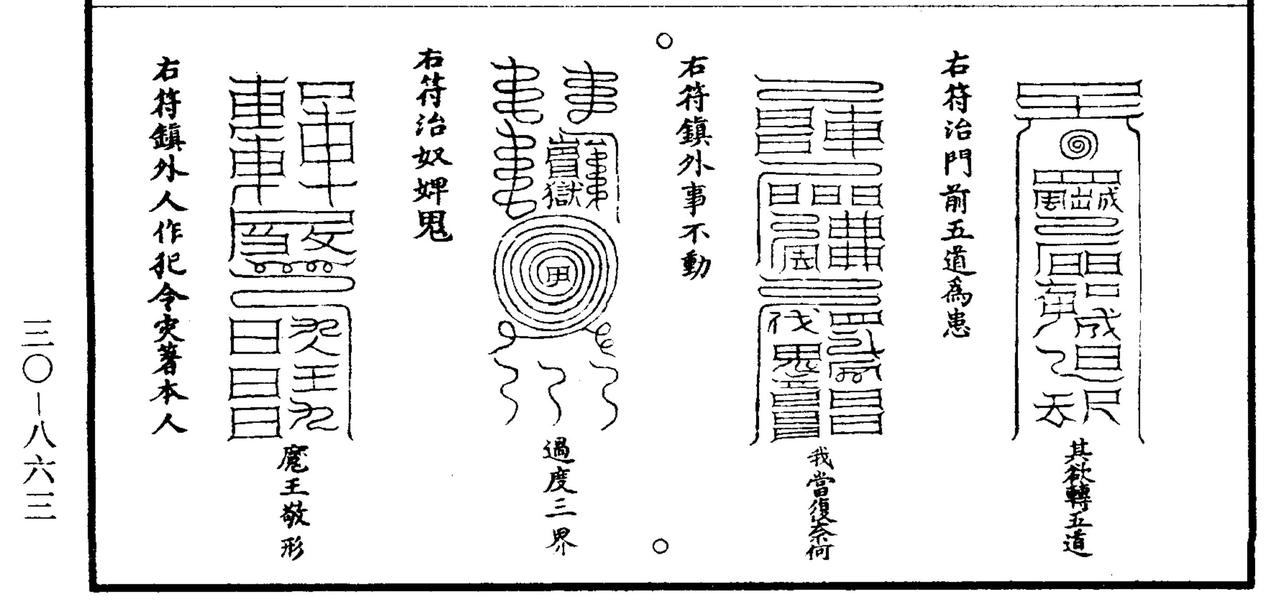 其欲轉五道
右符治門前五道為患
我當復奈何
右符鎮外事不動
過度三界
右符治奴婢鬼
魔王敬形
右符鎮外人作犯令灾著本人
三〇－八六三